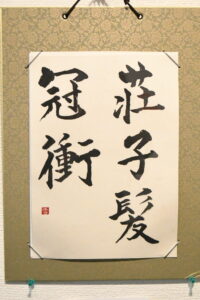 荘子髪
冠衝